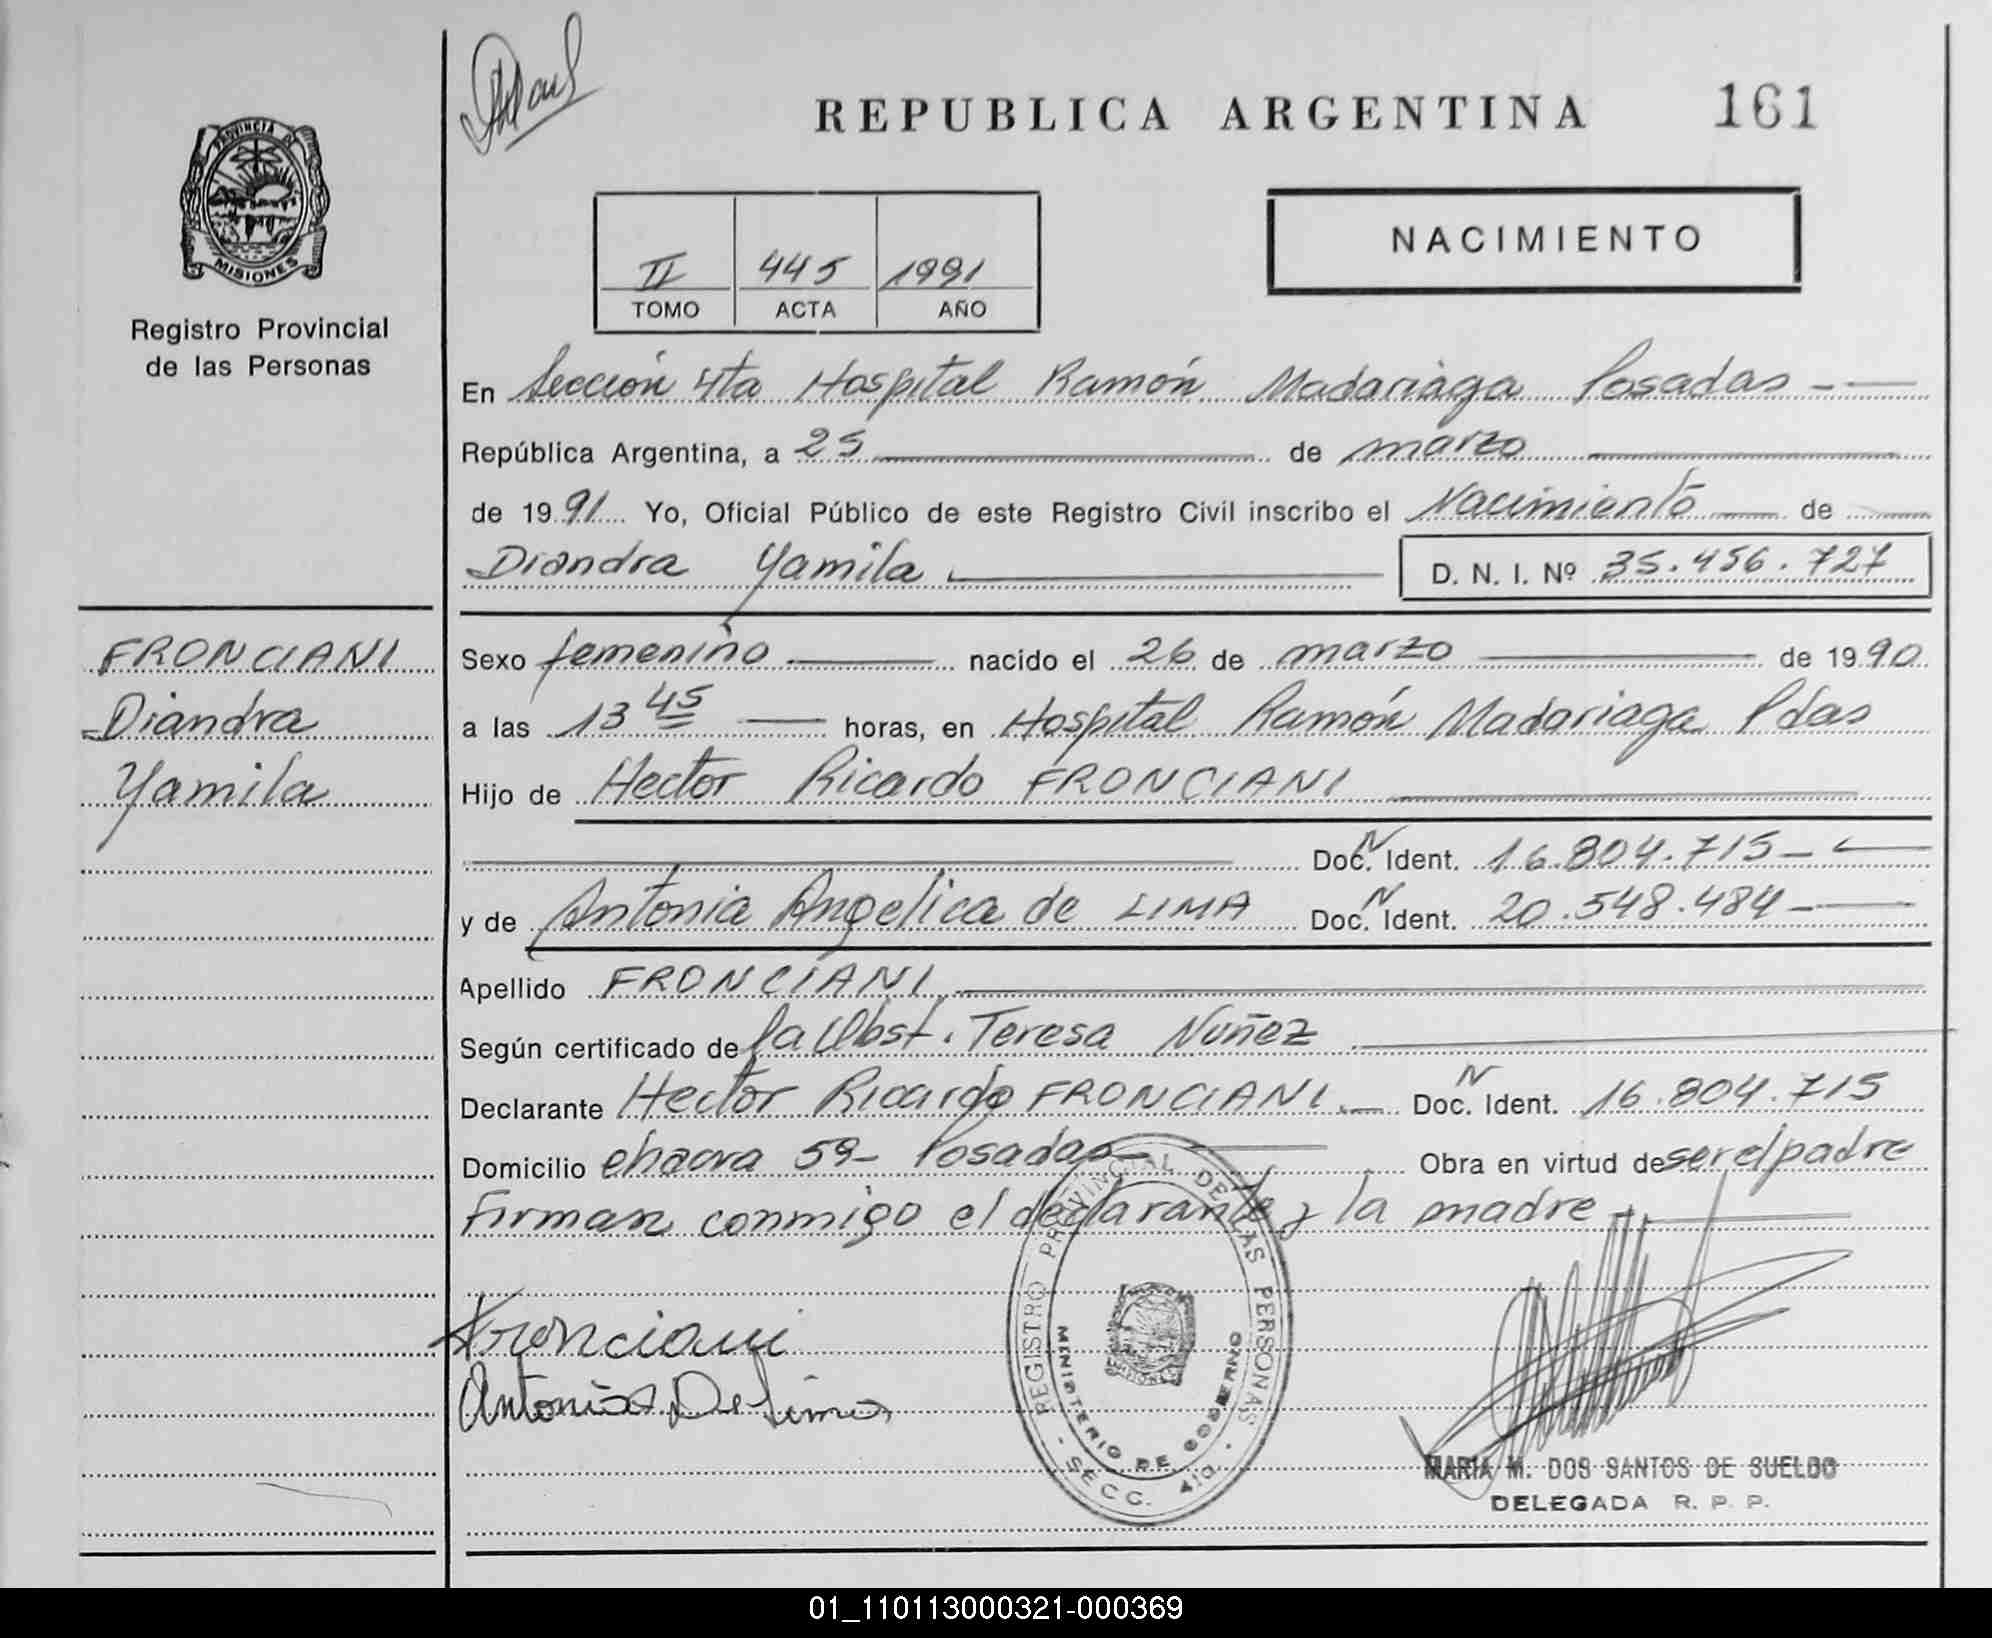 REPUBLICA ARGENTINA 161
PROVINCIA DE
MISIONES
Registro Provincial
de las Personas
NACIMIENTO
II 445 1991
TOMO ACTA AÑO
En Sección 4ta Hospital Ramón Madariaga Posadas
República Argentina, a 25 de marzo
de 1991 Yo, Oficial Público de este Registro Civil inscribo el Nacimiento de
Diandra Yamila D. N. I. Nº 35.456.727
FRONCIANI
Diandra
Yamila
Sexo femenino nacido el 26 de marzo de 1990
a las 13 45 horas, en Hospital Ramón Madariaga Pdas
Hijo de Hector Ricardo FRONCIANI
Doc. N Ident. 16.804.715
y de Antonia Angelica de LIMA Doc. N Ident. 20.548.484
Apellido FRONCIANI
Según certificado de la Obst. Teresa Nuñez
Declarante Hector Ricardo FRONCIANI Doc. N Ident. 16.804.715
Domicilio chacra 59- Posadas Obra en virtud de ser el padre
Firman conmigo el declarante y la madre
Fronciani
Antonia De Lima
REGISTRO PROVINCIAL DE LAS PERSONAS
MINISTERIO DE GOBIERNO
- SECC. 4ta. -
MISIONES
MARIA M. DOS SANTOS DE SUELDO
DELEGADA R. P. P.
01_110113000321-000369